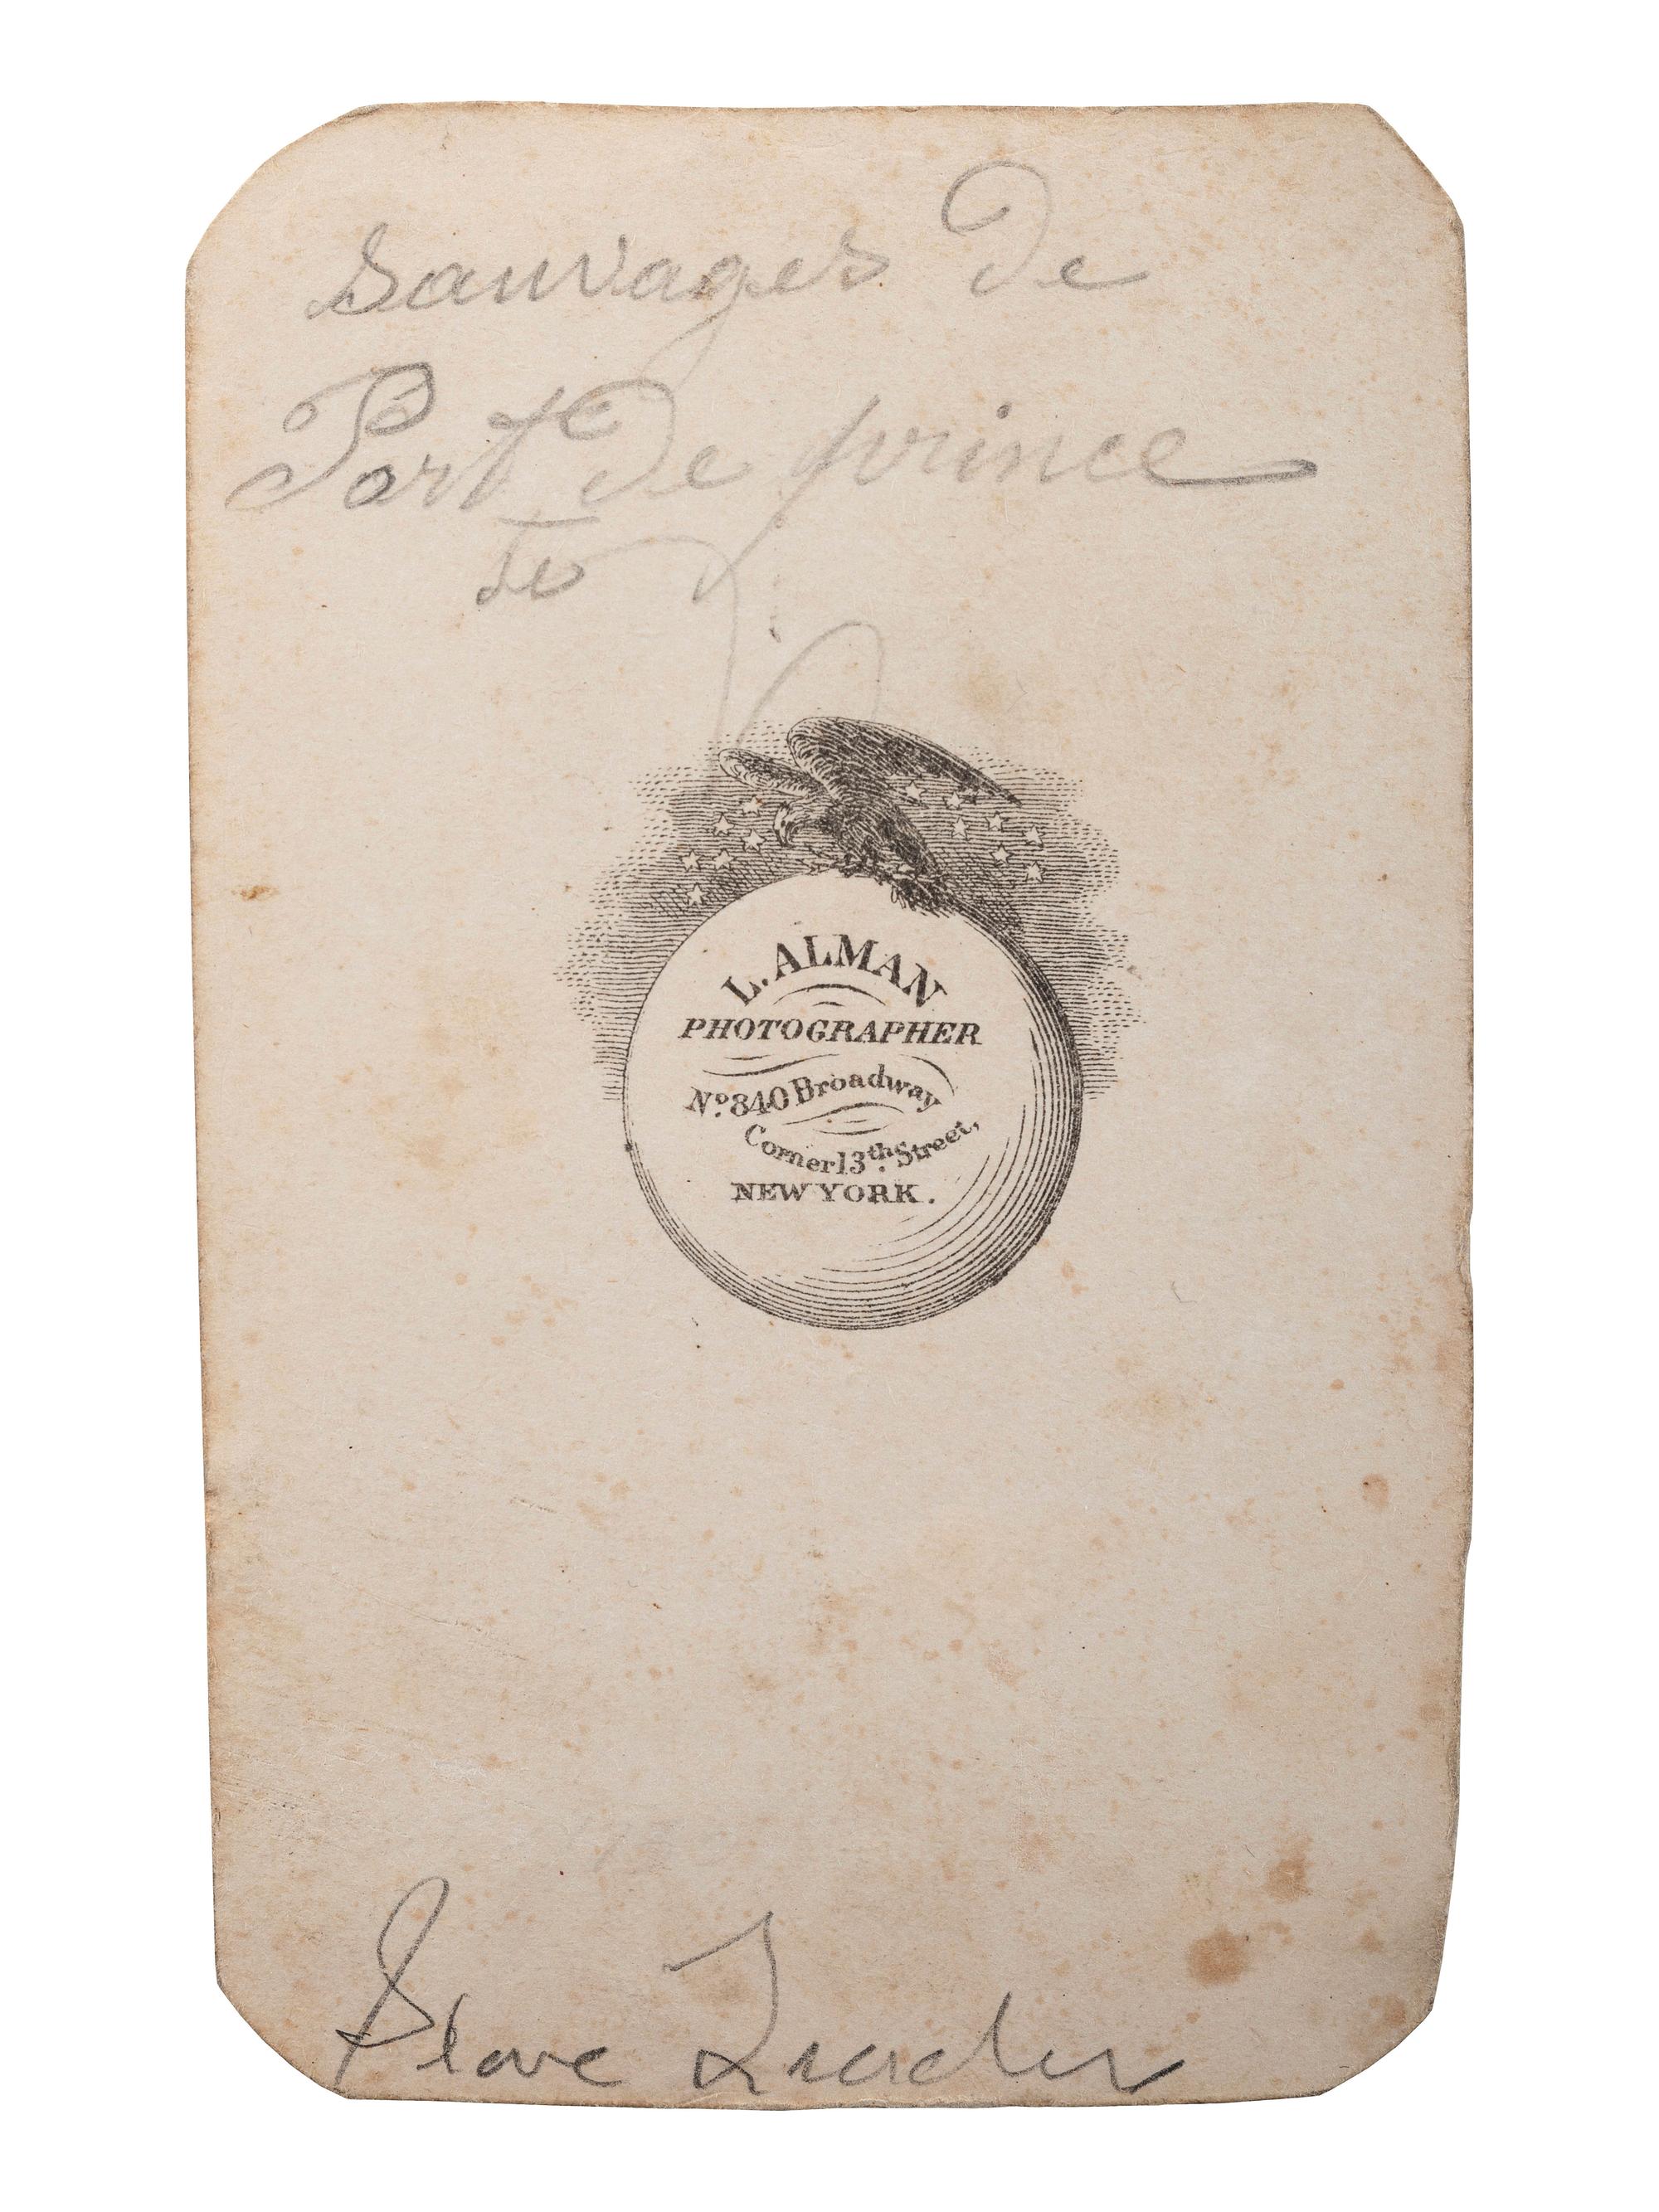 Sauvages De
Port De prince
L. ALMAN
PHOTOGRAPHER
No. 840 Broadway
Corner 13th. Street,
NEW YORK.
Slave Trader